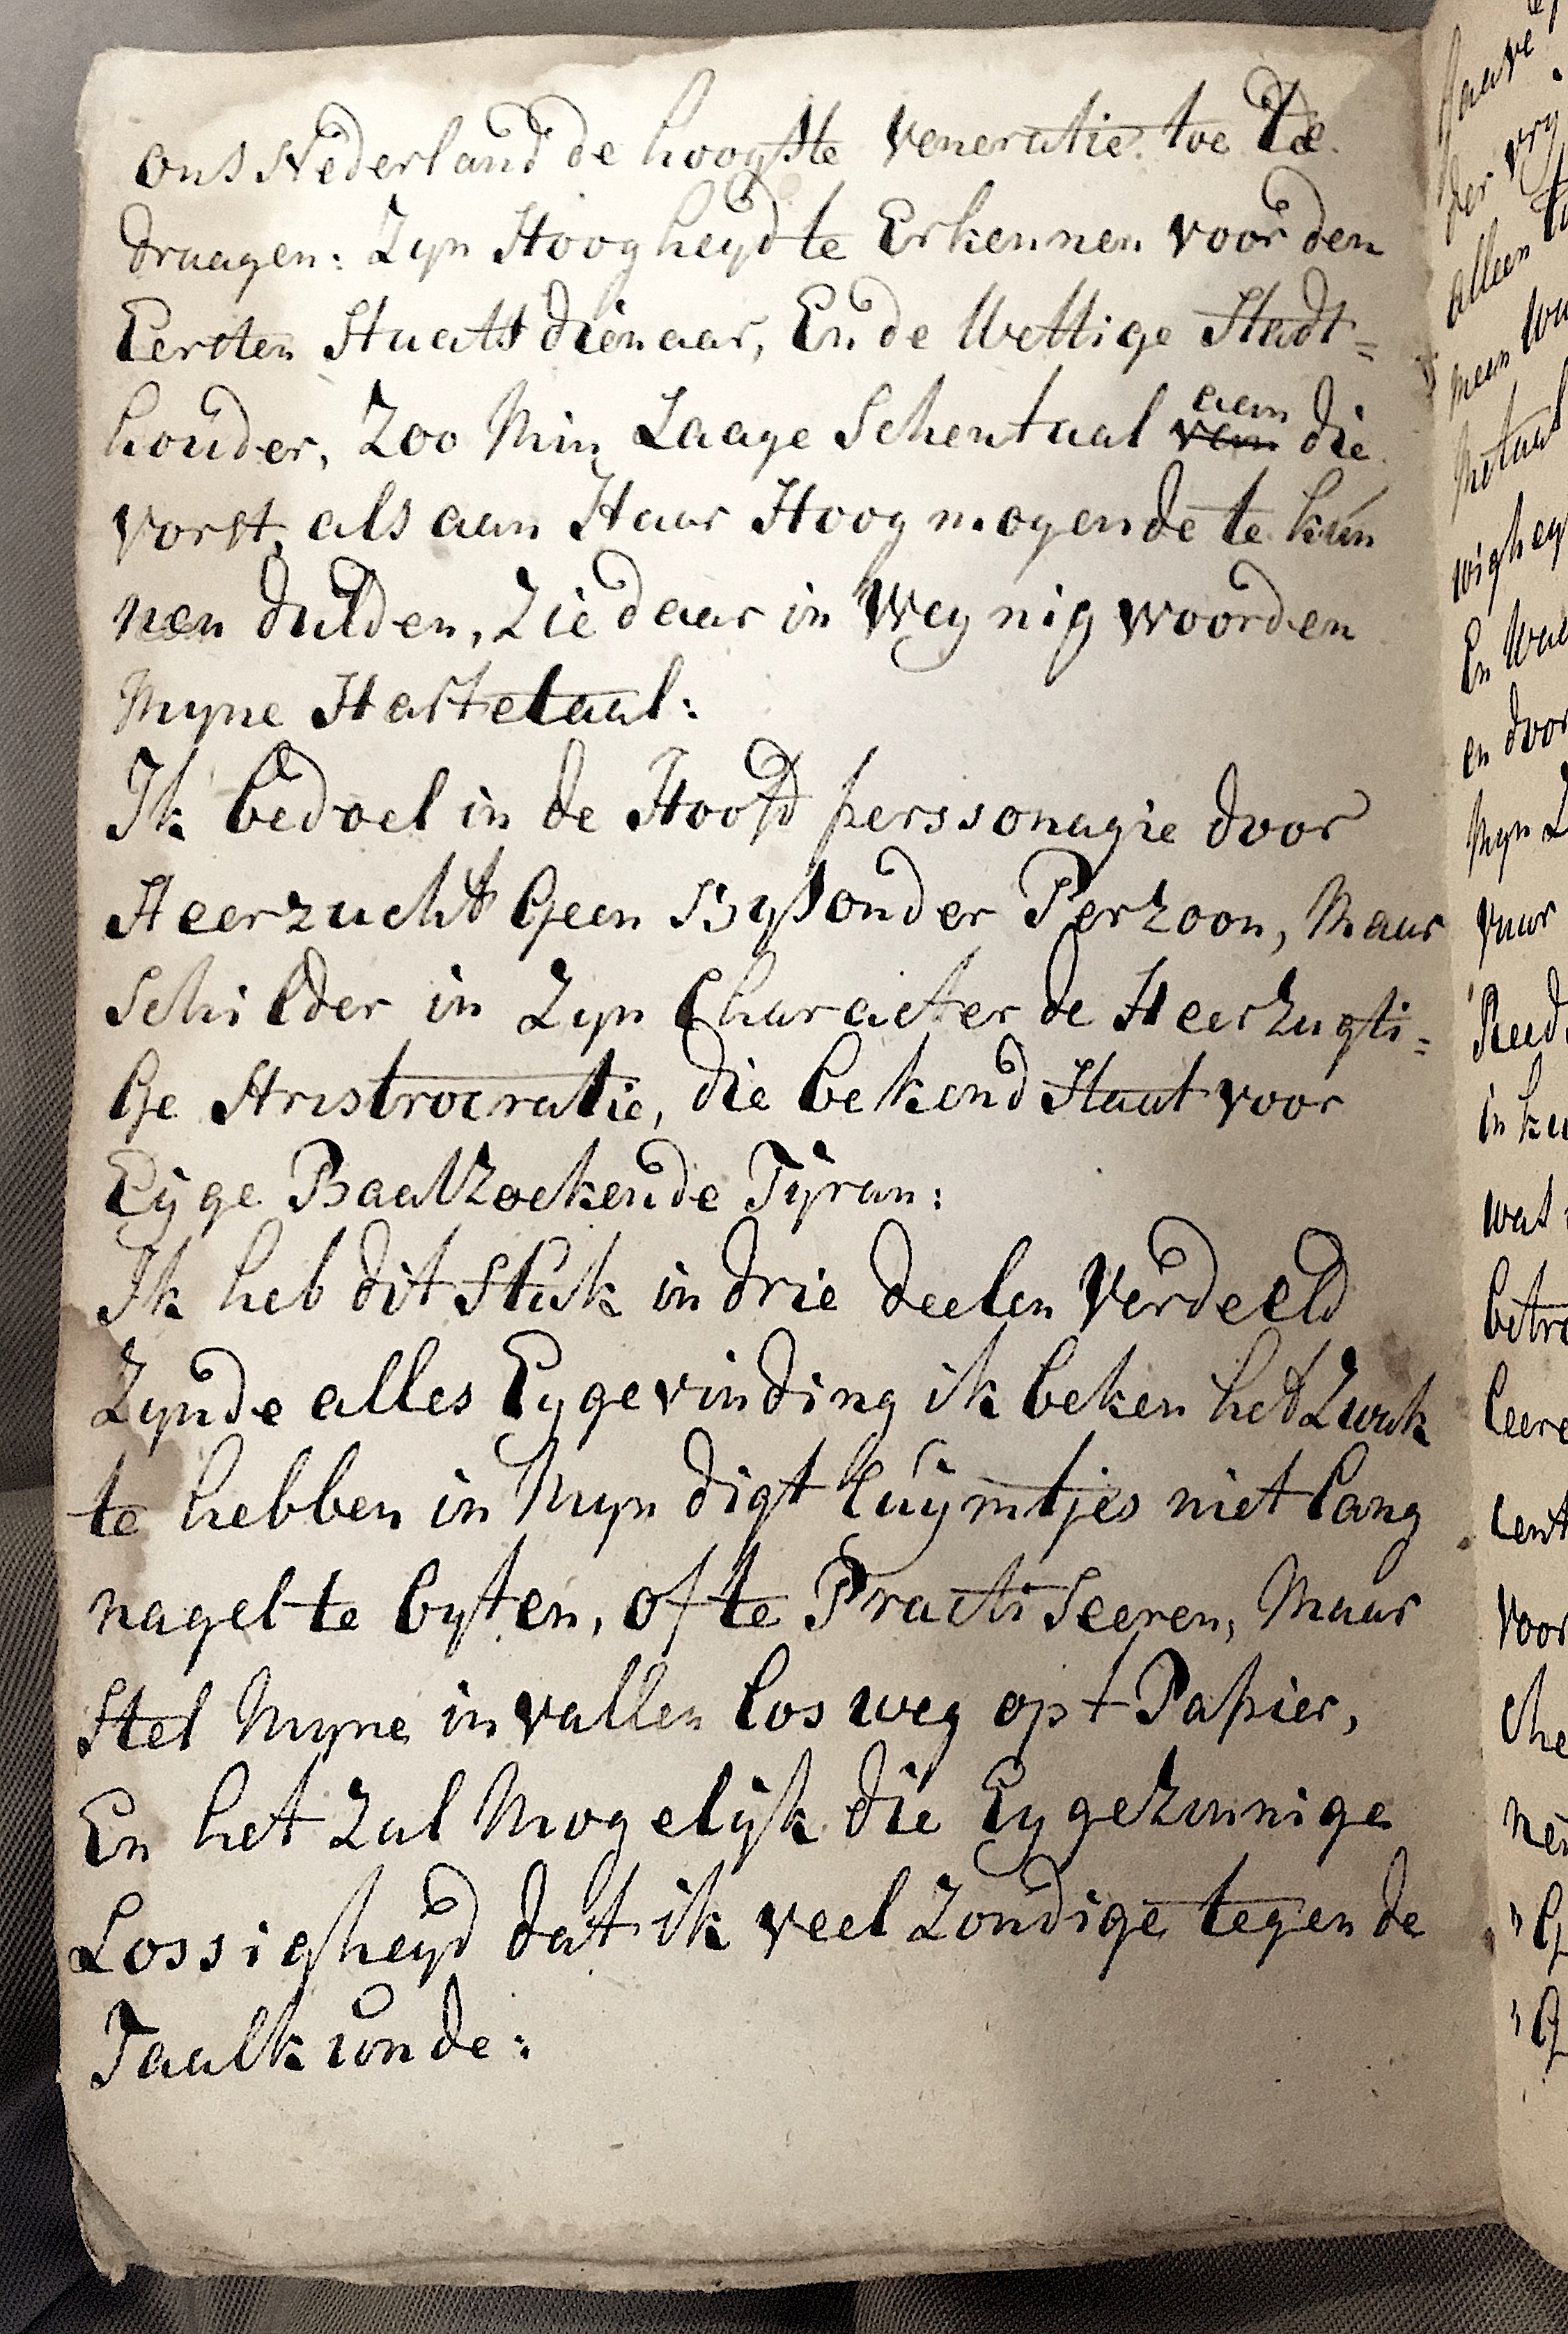 ons Nederland de hoogste veneratie toe te
draagen: Zyn Hoogheyd te Erkennen voor den
Eersten Staats dienaar, En de Wettige Stadt=
houder, Zoo Min Laage Schentaal van aan die
vorst, als aan Haar Hoog mogende te kún
nen dulden, Zie daar in Weynig woorden
Myne Hartetaal:
Ik bedoel in de Hoofd perssonagie door
Heerzucht Geen Bysonder Perzoon, Maar
Schilder in Zyn Character de Heerzugti=
Ge Aristrocratie, die bekend Staat voor
Eyge Baatzoekende Tÿran:
Ik heb dit Stuk in drie deelen Verdeeld
Zynde alles Eyge vinding ik beken het Zwak
te hebben in Myn digt luÿmtjes niet lang
nagel te byten, of te Practiseeren, Maar
Stel Myne invallen los weg op t Papier,
En het Zal Mogelÿk die Eygezinnige
Lossigheyd dat ik veel Zondige tegen de
Taalkunde:
der vry
alleen
meen
Metaal
En
en door
Myn
vuur
in
wat
voor